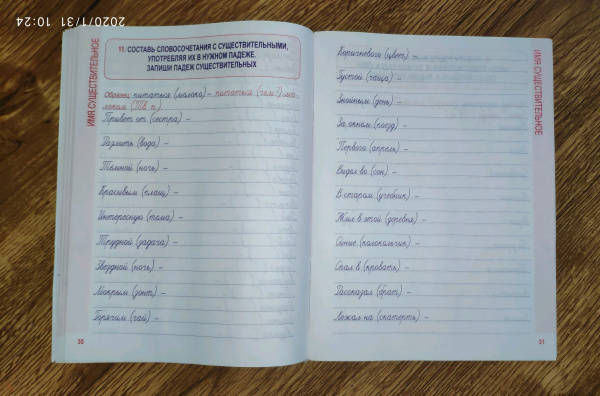 2020/1/31 10:24
ИМЯ СУЩЕСТВИТЕЛЬНОЕ
11. СОСТАВЬ СЛОВОСОЧЕТАНИЯ С СУЩЕСТВИТЕЛЬНЫМИ,
УПОТРЕБЛЯЯ ИХ В НУЖНОМ ПАДЕЖЕ.
ЗАПИШИ ПАДЕЖ СУЩЕСТВИТЕЛЬНЫХ
Образец: питаться (молоко) – питаться (чем?) мо-
локом (Тв. п.)
Привет от (сестра) –
Разлить (вода) –
Тёмной (ночь) –
Красивым (плащ) –
Интересную (тема) –
Трудной (задача) –
Звёздной (ночь) –
Мокрым (зонт) –
Горячим (чай) –
30
Коричневого (цвет) –
Густой (чаща) –
Знойным (день) –
За окном (поезд) –
Первого (апрель) –
Видел во (сон) –
В старом (учебник) –
Жил в этой (деревня) –
Синие (колокольчик) –
Спал в (кровать) –
Рассказал (брат) –
Лежал на (скатерть) –
ИМЯ СУЩЕСТВИТЕЛЬНОЕ
31